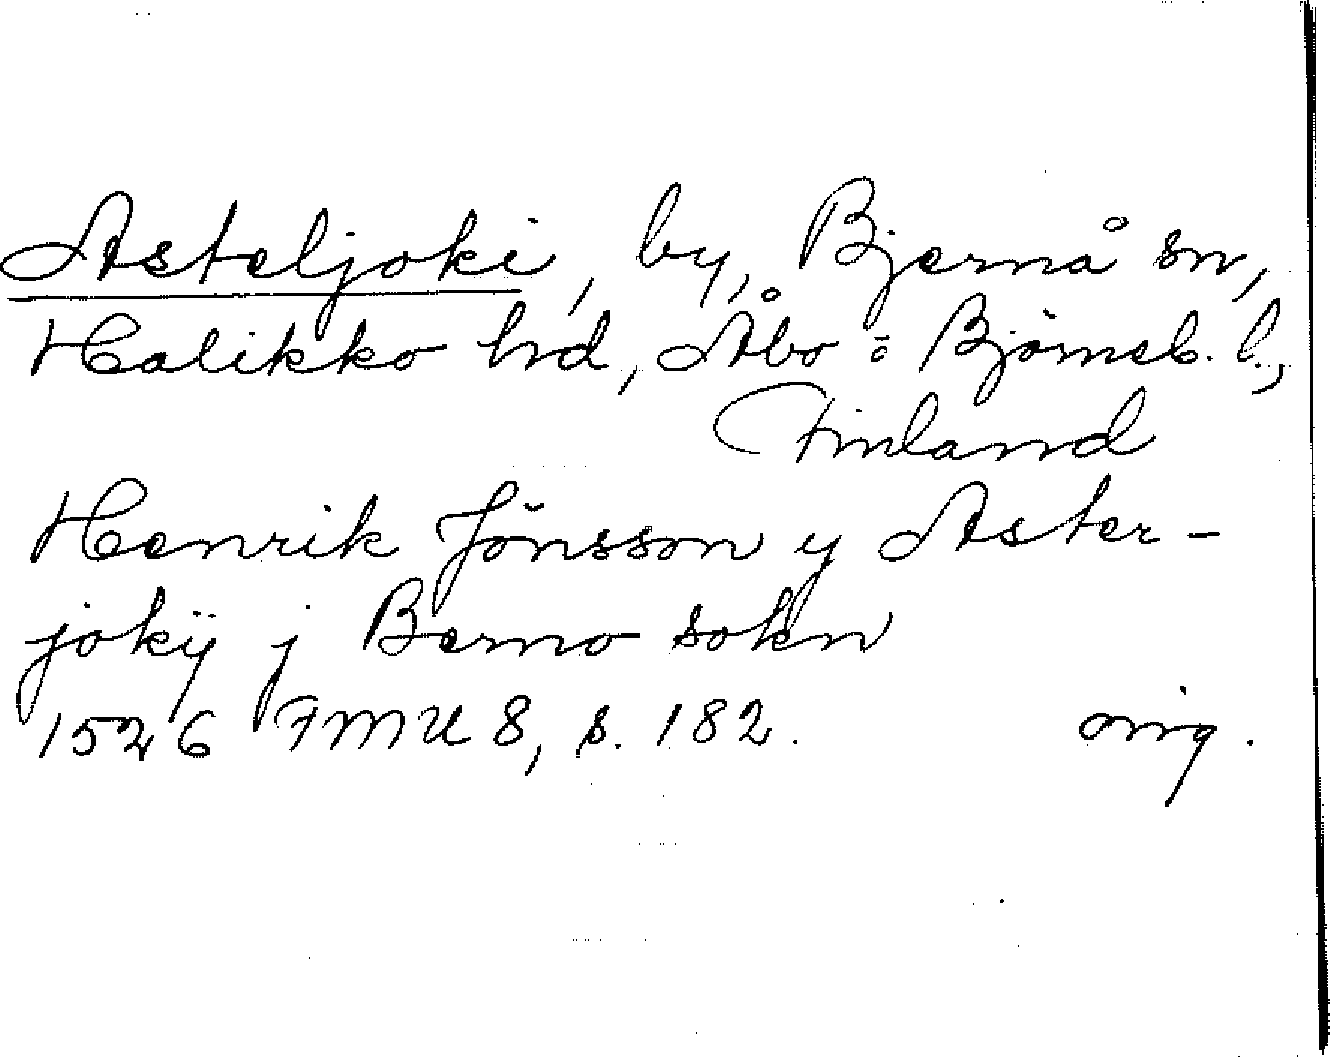 Asteljoki, by, Bjernå sn,
Halikko hrd, Åbo o Björneb. l.,
Finland
Henrik Jönsson y Aster-
jokÿ j Berno sokn
1526 FMU 8, s. 182. orig.